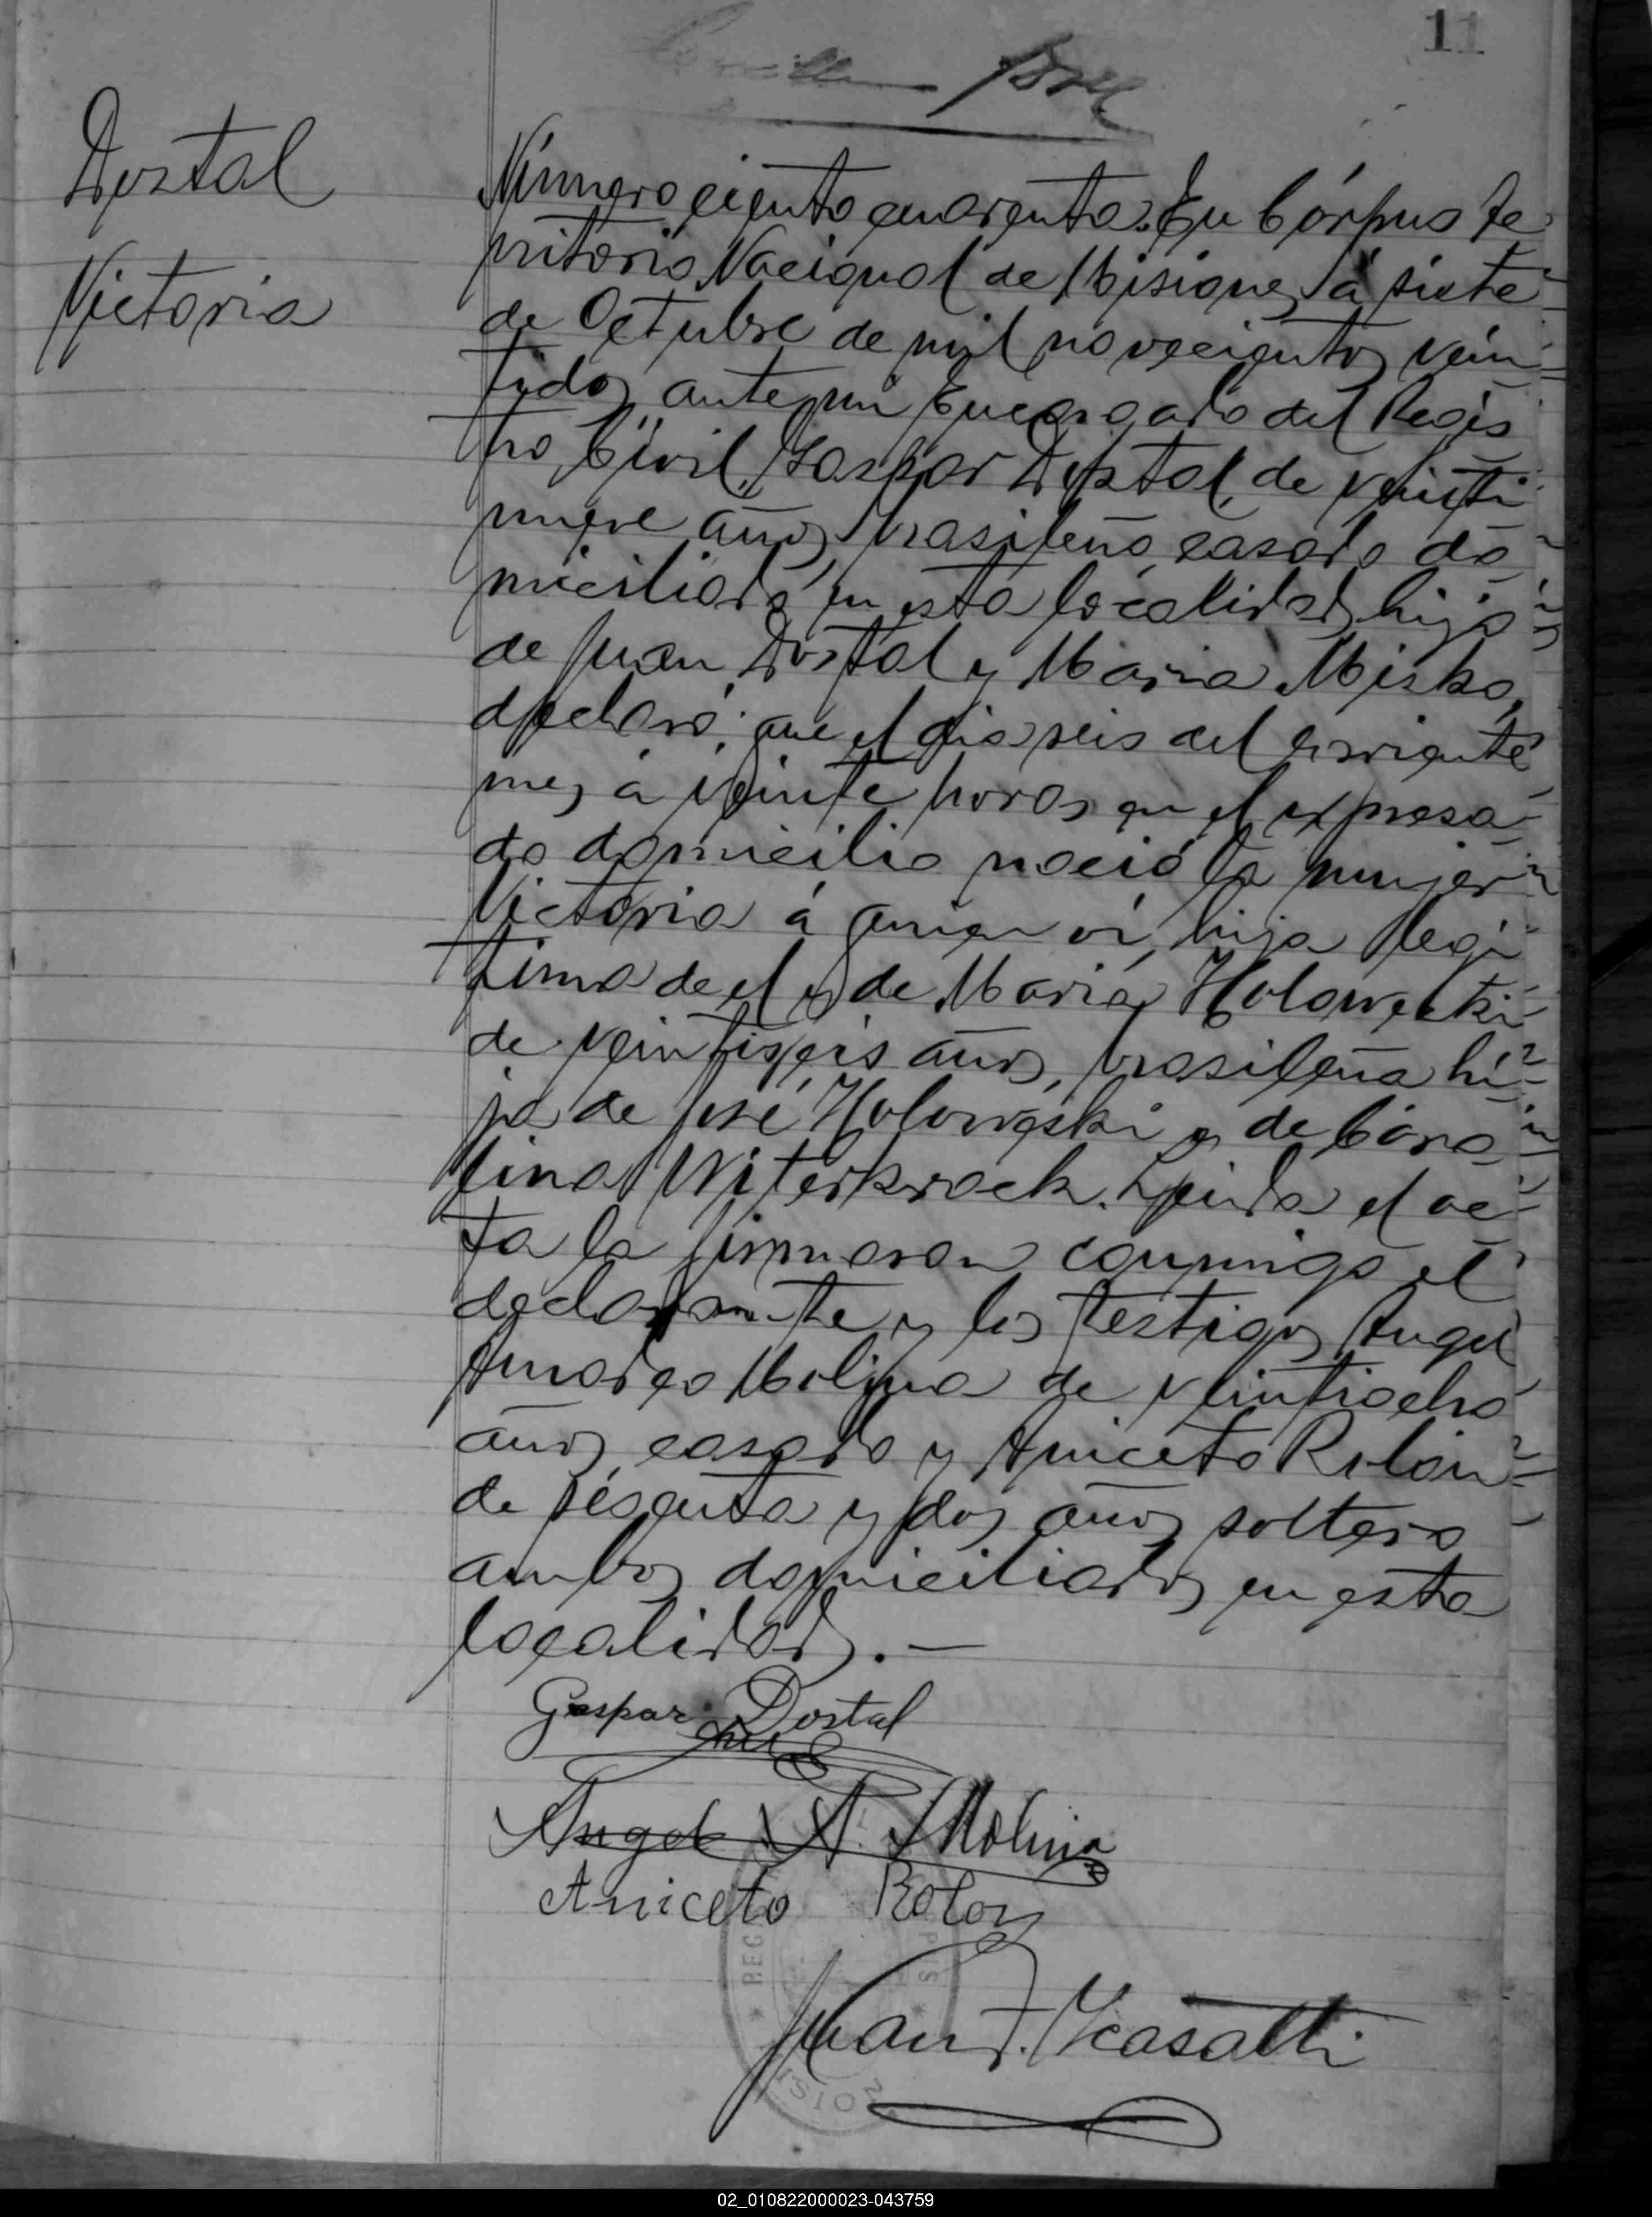 11
Dostal
Victoria
Número ciento cuarenta. En Córpus te
rritorio Nacional de Misiones, á siete
de Octubre de mil novecientos vein
tidos, ante mi Encargado del Regis
tro Civil, Gaspar Dostal, de veinti
nueve años, brasileño, casado do
miciliado en esta localidad, hijo
de Juan Dostal y Maria Misko,
declaró: que el dia seis del corriente
mes, á veinte horas en el expresa-
do domicilio nació la mujer
Victoria á quien vi, hija legi
tima de el y de Maria
de veintiseis años, brasileña hi-
ja de José Holoweski y de Caro
lina Leida el ac-
ta la firmaron conmigo el
declarante y los testigos Angel
Amadeo Molina de veintiocho
años, casado y Aniceto Rolón
de sesenta y dos años, soltero
ambos domiciliados en esta
localidad.—
Gaspar Dostal
Angel A. Molina
Aniceto Rolon
Juan F.
02_010822000023-043759